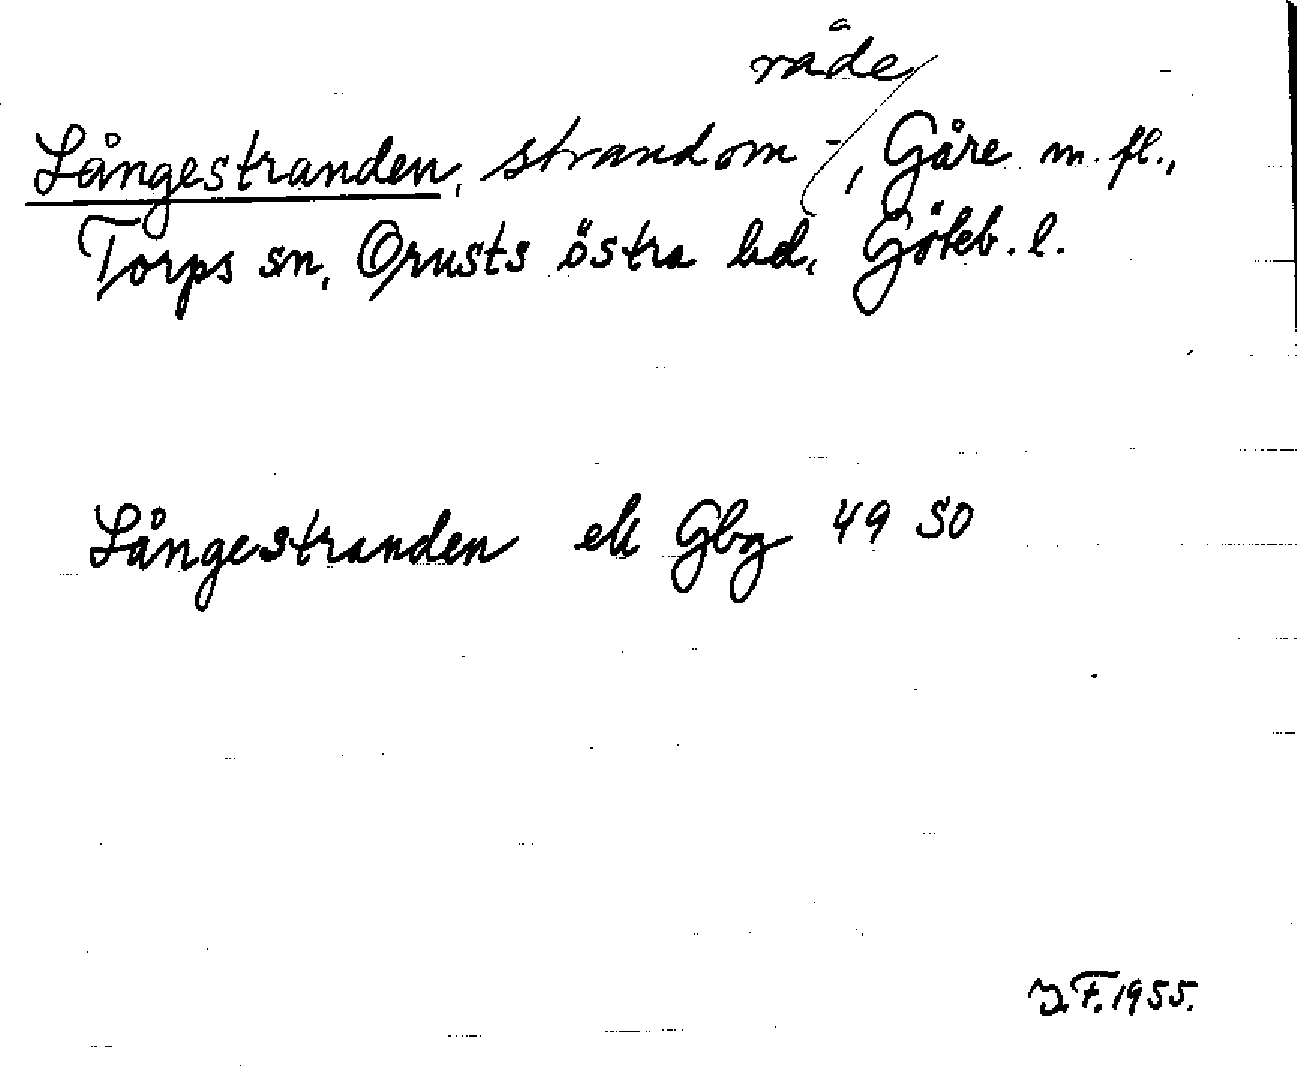 råde
Långestranden, strandom-, Gåre m. fl.,
Torps sn, Orusts östra hd, Göteb. l.
Långestranden ek Gbg 49 SO
J.F. 1955.